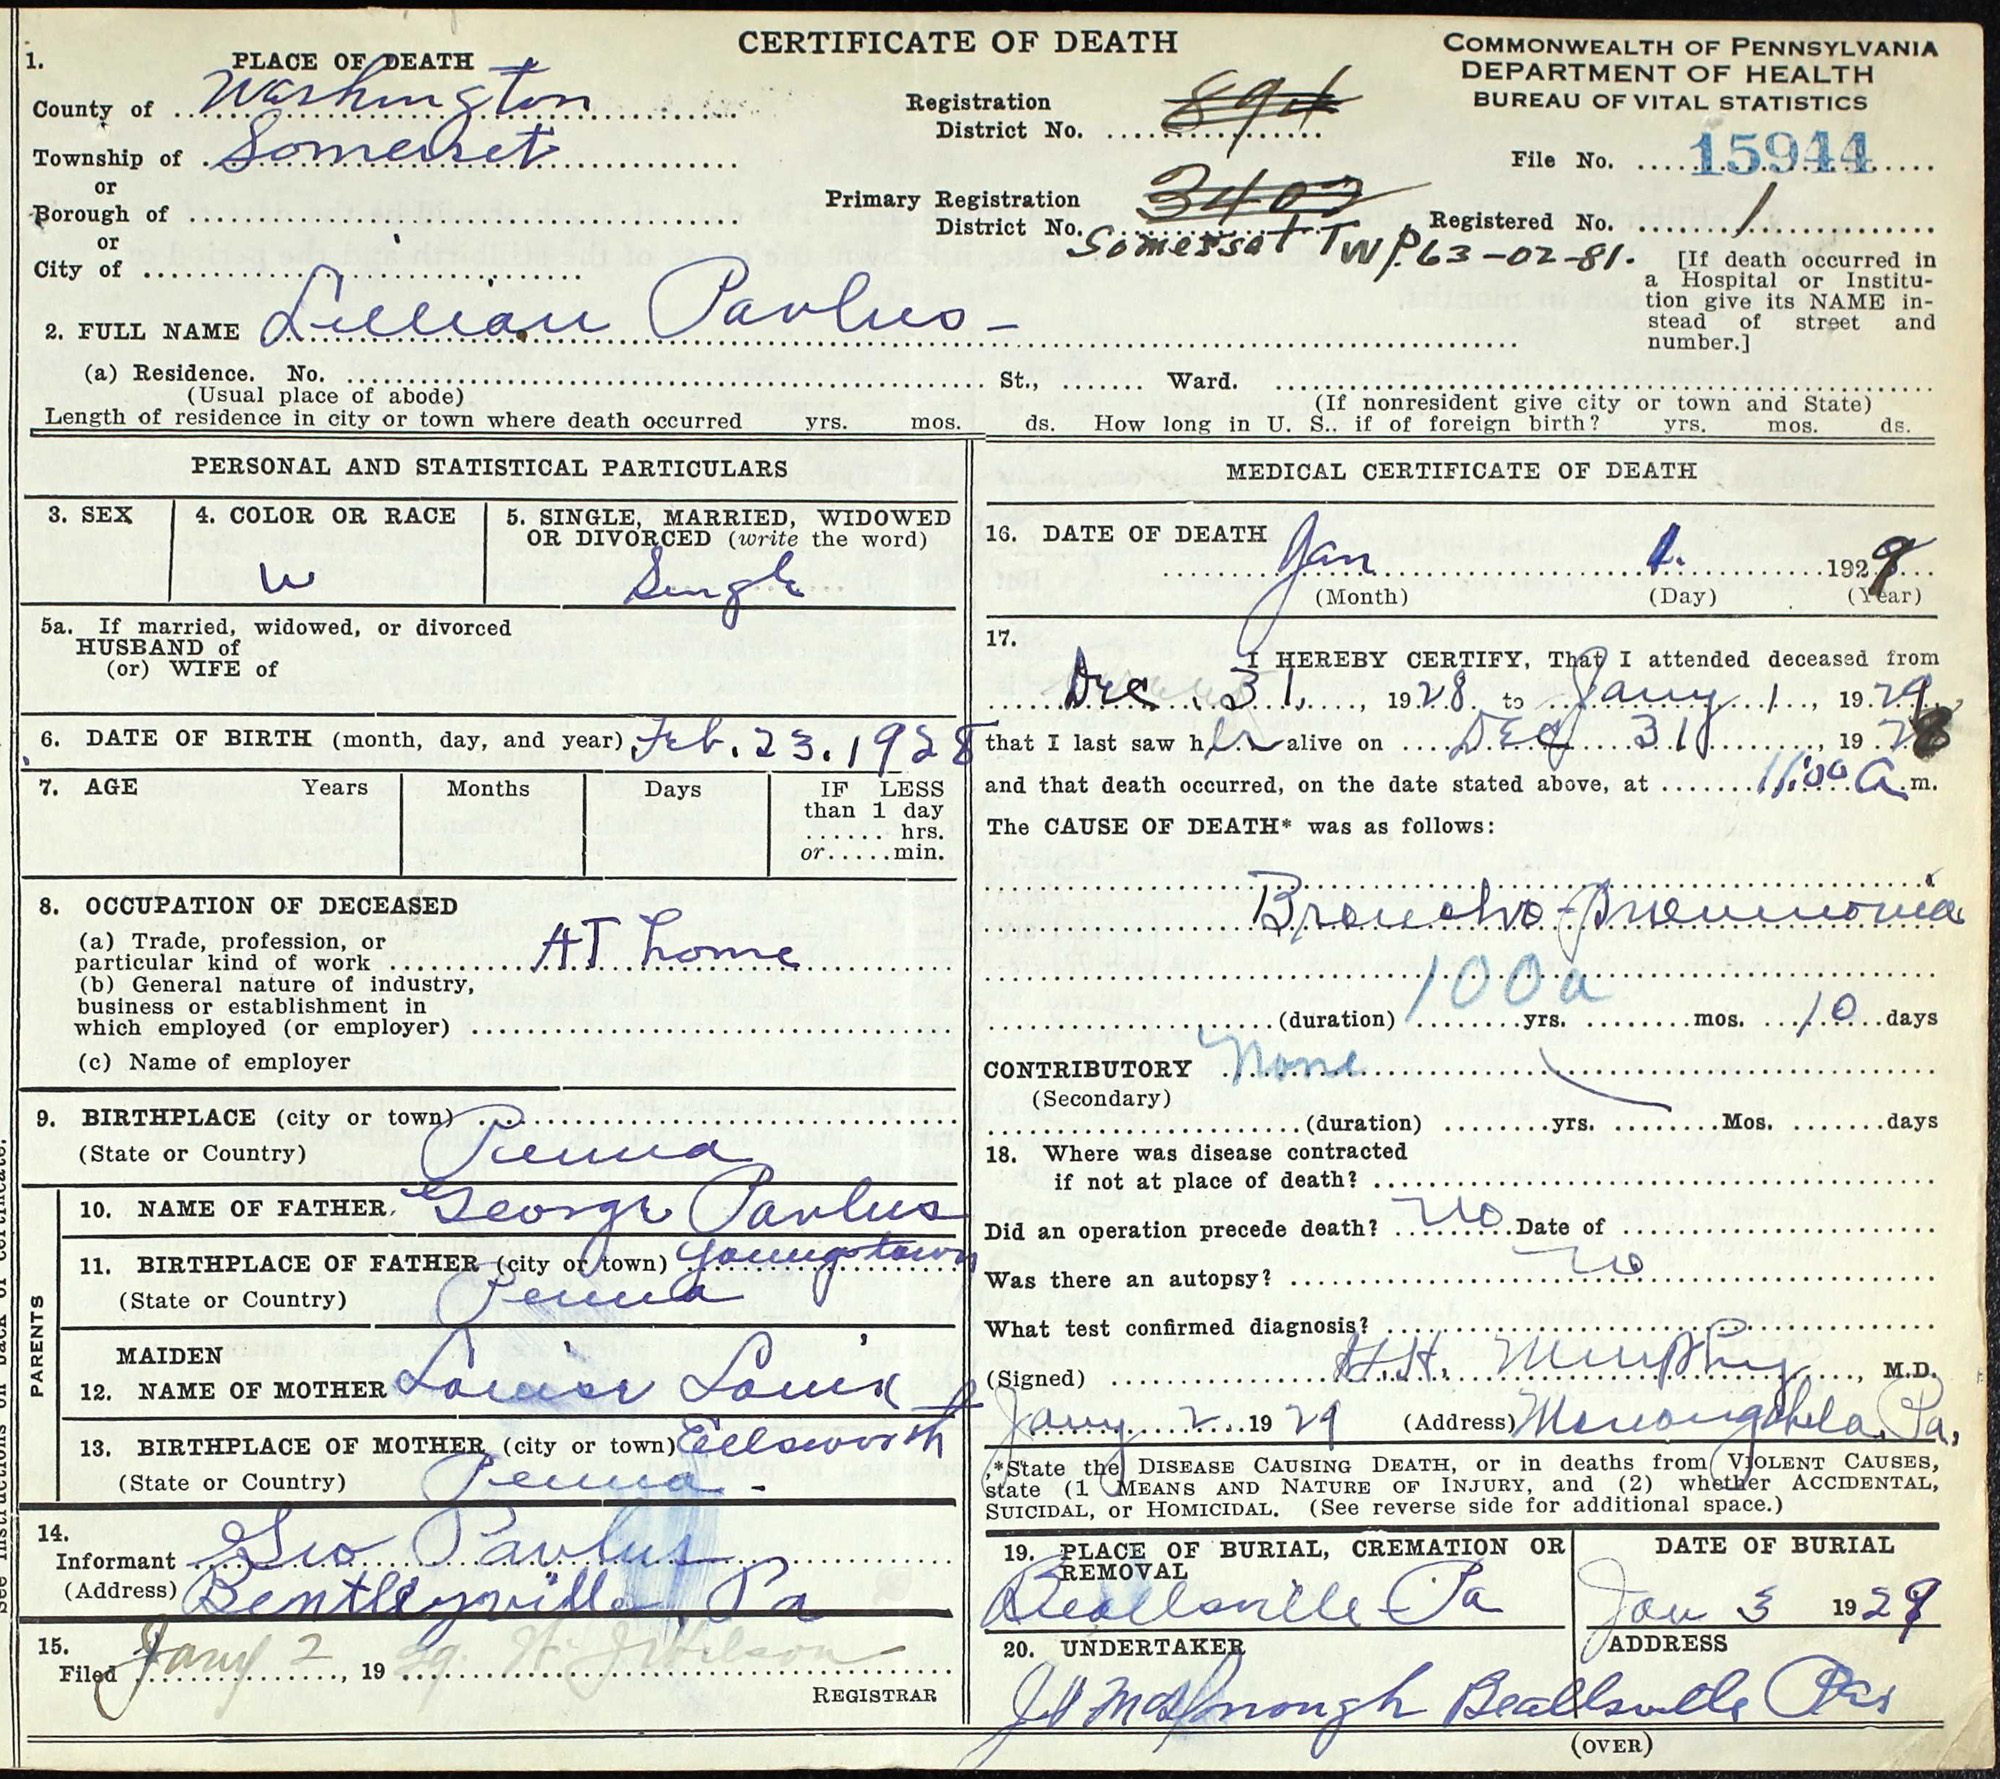 CERTIFICATE OF DEATH
COMMONWEALTH OF PENNSYLVANIA
DEPARTMENT OF HEALTH
BUREAU OF VITAL STATISTICS
1. PLACE OF DEATH
County of Washington
Township of Somerset
or
Borough of
or
City of
Registration
District No. 894
File No. 15944
Primary Registration
District No. 3402
Somerset Twp. 63-02-81.
Registered No. 1
[If death occurred in
a Hospital or Institu-
tion give its NAME in-
stead of street and
number.]
2. FULL NAME Lillian Pavlus -
(a) Residence. No. St., Ward.
(Usual place of abode) (If nonresident give city or town and State)
Length of residence in city or town where death occurred yrs. mos. ds. How long in U. S., if of foreign birth? yrs. mos. ds.
PERSONAL AND STATISTICAL PARTICULARS
3. SEX 4. COLOR OR RACE 5. SINGLE, MARRIED, WIDOWED
OR DIVORCED (write the word)
W Single
5a. If married, widowed, or divorced
HUSBAND of
(or) WIFE of
6. DATE OF BIRTH (month, day, and year) Feb. 23. 1928
7. AGE Years Months Days IF LESS
than 1 day
hrs.
or min.
8. OCCUPATION OF DECEASED
(a) Trade, profession, or
particular kind of work AT home
(b) General nature of industry,
business or establishment in
which employed (or employer)
(c) Name of employer
9. BIRTHPLACE (city or town)
(State or Country) Penna
PARENTS
10. NAME OF FATHER George Pavlus
11. BIRTHPLACE OF FATHER (city or town) Youngstown
(State or Country) Penna
MAIDEN
12. NAME OF MOTHER Louise
13. BIRTHPLACE OF MOTHER (city or town) Ellsworth
(State or Country) Penna -
14.
Informant Geo Pavlus
(Address) Bentleyville, Pa
15.
Filed Jany 2, 19 29. Wilson
REGISTRAR
MEDICAL CERTIFICATE OF DEATH
16. DATE OF DEATH
Jan 1. 1929
(Month) (Day) (Year)
17.
I HEREBY CERTIFY, That I attended deceased from
Dec 31, 1928 to Jany 1, 1929,
that I last saw her alive on Dec 31, 1928
and that death occurred, on the date stated above, at 11:00 a.m.
The CAUSE OF DEATH* was as follows:
Broncho-Pneumonia
100a
(duration) yrs. mos. 10 days
CONTRIBUTORY None
(Secondary)
(duration) yrs. Mos. days
18. Where was disease contracted
if not at place of death?
Did an operation precede death? No Date of
Was there an autopsy? No
What test confirmed diagnosis?
(Signed) H.H. Murphy, M.D.
Jany 2 1929 (Address) Monongahela, Pa.
*State the DISEASE CAUSING DEATH, or in deaths from VIOLENT CAUSES,
state (1 MEANS AND NATURE OF INJURY, and (2) whether ACCIDENTAL,
SUICIDAL, or HOMICIDAL. (See reverse side for additional space.)
19. PLACE OF BURIAL, CREMATION OR
REMOVAL
Beallsville Pa
DATE OF BURIAL
Jan 3 1929
20. UNDERTAKER
ADDRESS
Beallsville
(OVER)